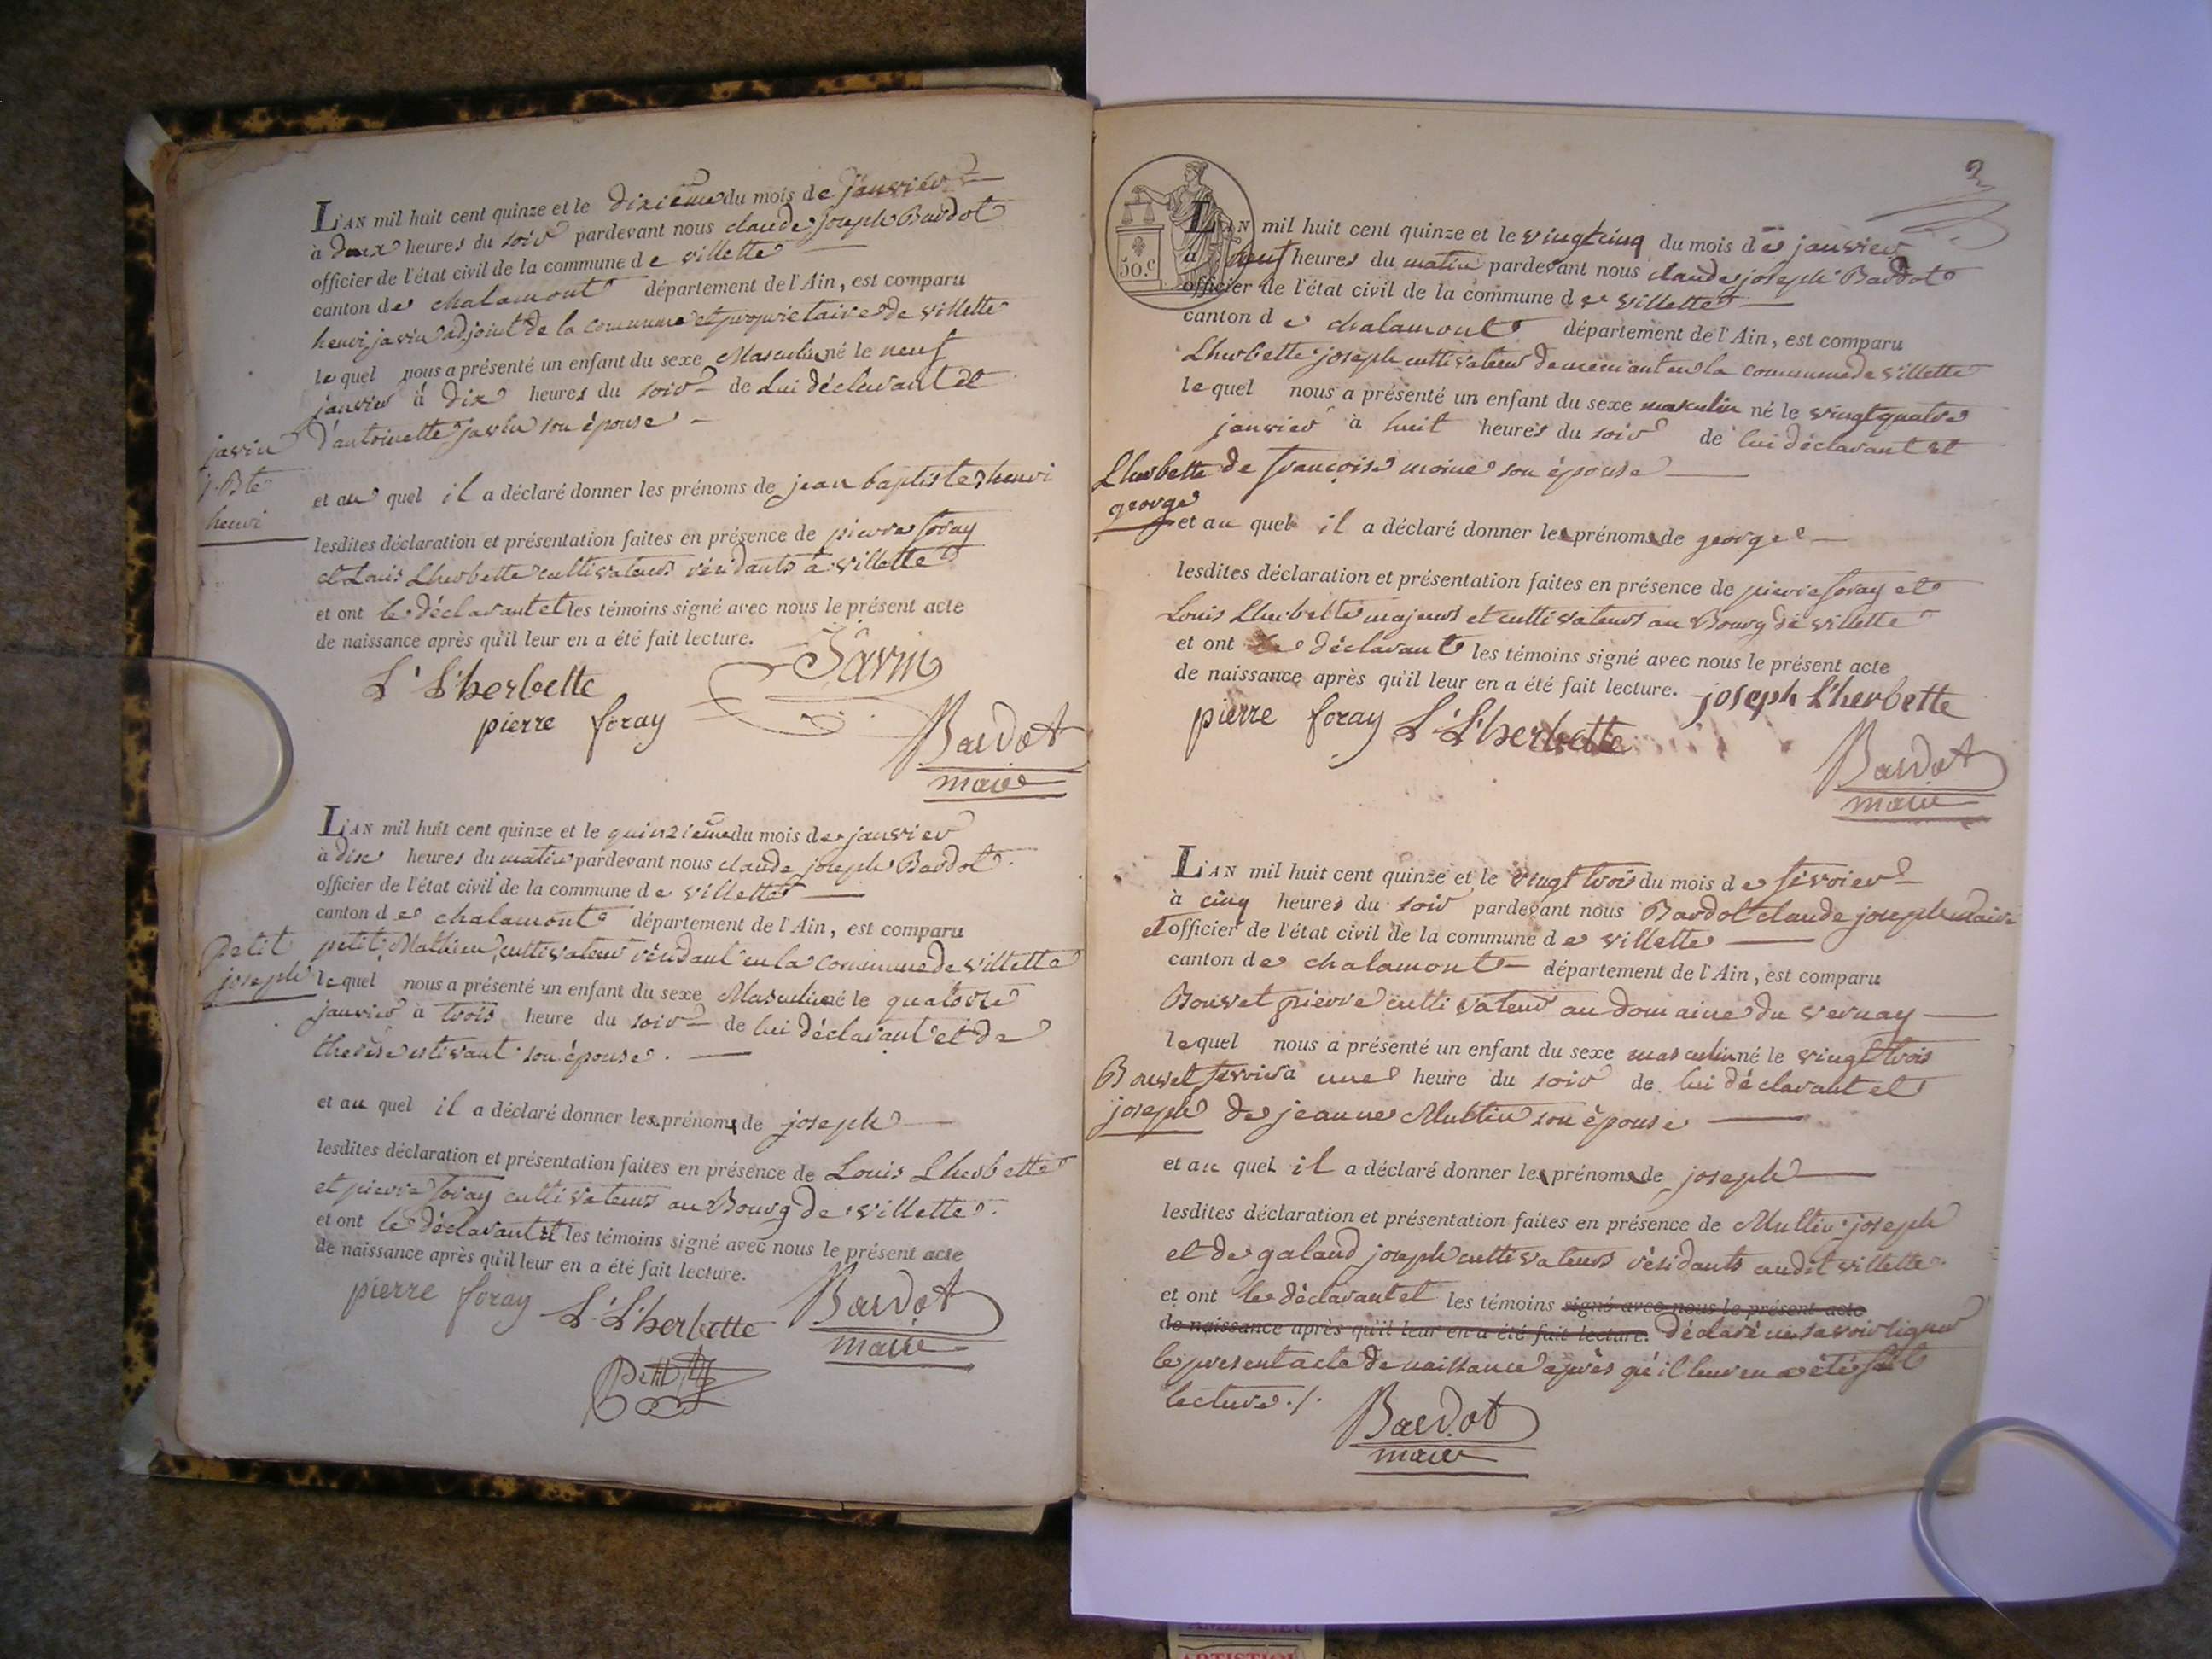 L'AN mil huit cent quinze et le dixième du mois de janvier
à deux heures du soir pardevant nous claude joseph Bardot
officier de l'état civil de la commune de villette
canton de chalamont département de l'Ain, est comparu
henri javin adjoint de la commune et propriétaire de villette
lequel nous a présenté un enfant du sexe Masculin né le neuf
janvier à dix heures du soir de Lui déclarant et
d'antoinette javin son épouse
javin
j. Bte
henri
et au quel il a déclaré donner les prénoms de jean baptiste henri
lesdites déclaration et présentation faites en présence de pierre foray
et Louis Lherbette cultivateurs résidants à villette
et ont le déclarant et les témoins signé avec nous le présent acte
de naissance après qu'il leur en a été fait lecture.
L. L'herbette
Javin
pierre foray
Bardot
maire
L'AN mil huit cent quinze et le quinzième du mois de janvier
à dix heures du matin pardevant nous claude joseph Bardot
officier de l'état civil de la commune de villette
canton de chalamont département de l'Ain, est comparu
Petit
joseph
petit Mathieu, cultivateur résidant en la commune de villette
lequel nous a présenté un enfant du sexe Masculin né le quatorze
janvier à trois heure du soir de lui déclarant et de
therèse estivant son épouse.
et au quel il a déclaré donner les prénoms de joseph
lesdites déclaration et présentation faites en présence de Louis Lherbette
et pierre foray cultivateurs au Bourg de villette.
et ont le déclarant et les témoins signé avec nous le présent acte
de naissance après qu'il leur en a été fait lecture.
pierre foray L. L'herbette Bardot
maire
Petit
2
50.c
L'AN mil huit cent quinze et le vingt cinq du mois de janvier
à neuf heures du matin pardevant nous claude joseph Bardot
officier de l'état civil de la commune de villette
canton de chalamont département de l'Ain, est comparu
Lherbette joseph cultivateur demeurant en la commune de villette
lequel nous a présenté un enfant du sexe masculin né le vingt quatre
janvier à huit heures du soir de lui déclarant et
Lherbette
george
de françoise moine son épouse
et au quel il a déclaré donner les prénoms de george
lesdites déclaration et présentation faites en présence de pierre foray et
Louis Lherbette majeurs et cultivateurs au Bourg de villette
et ont le déclarant les témoins signé avec nous le présent acte
de naissance après qu'il leur en a été fait lecture. joseph L'herbette
pierre foray L. L'herbette
Bardot
maire
L'AN mil huit cent quinze et le vingt trois du mois de février
à cinq heures du soir pardevant nous Bardot claude joseph maire
et officier de l'état civil de la commune de villette
canton de chalamont département de l'Ain, est comparu
Bouvet pierre cultivateur au domaine du vernay
lequel nous a présenté un enfant du sexe masculin né le vingt trois
Bouvet
joseph
fevrier à une heure du soir de lui déclarant et
de jeanne Multin son épouse
et au quel il a déclaré donner les prénoms de joseph
lesdites déclaration et présentation faites en présence de Multin joseph
et de galand joseph cultivateurs résidants audit villette
et ont le déclarant et les témoins signé avec nous le présent acte
de naissance après qu'il leur en a été fait lecture. déclaré ne savoir signer
le present acte de naissance après qu'il leur en a été fait
lecture ./.
Bardot
maire